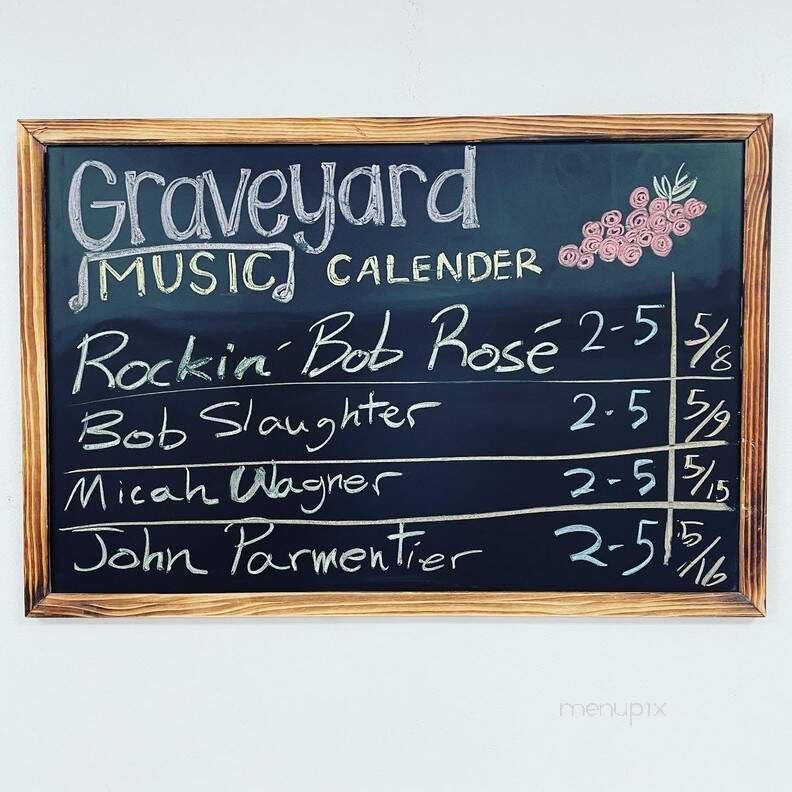 Graveyard
MUSIC CALENDER
Rockin' Bob Rosé 2-5 5/8
Bob Slaughter 2-5 5/9
Micah Wagner 2-5 5/15
John Parmentier 2-5 5/16
menupix